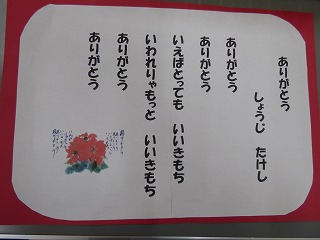 ありがとう
しょうじ　たけし
ありがとう
ありがとう
いえばとっても　いいきもち
いわれりゃもっと　いいきもち
ありがとう
ありがとう